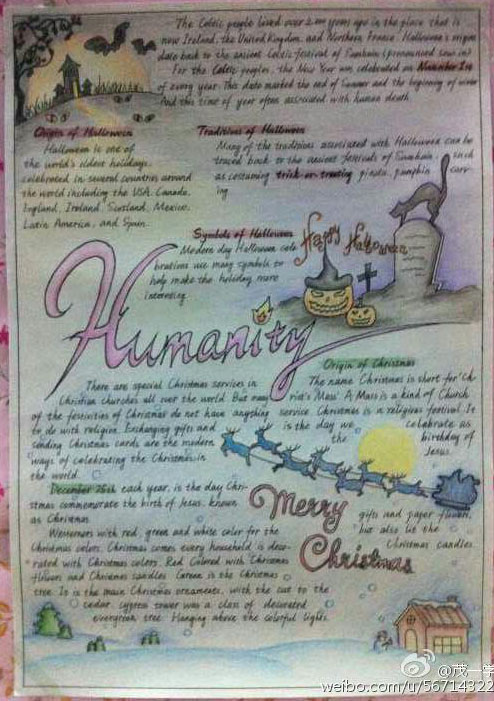 The Celtic people lived over 2,000 years ago in the place that is
now Ireland, the United Kingdom, and Northern France. Halloween's origins
date back to the ancient Celtic festival of Samhain (pronounced sow in)
For the Celtic peoples, the New Year was celebrated on November 1st
of every year. This date marked the end of Summer and the beginning of winter
And this time of year often associated with human death
Origin of Halloween
Halloween is one of
the world's oldest holidays,
celebrated in several countries around
the world including the USA, Canada,
England, Ireland, Scotland, Mexico,
Latin America, and Spain
Traditions of Halloween
Many of the traditions associated with Halloween can be
traced back to the ancient festivals of Samhain, such
as costuming trick-or-treating pinata, pumpkin carv-
ing
Symbols of Halloween
Modern day Halloween cele
brations use many symbols to
help make the holiday more
interesting
Happy Halloween
Humanity
There are special Christmas services in
Christian churches all over the world. But many
of the festivities of Christmas do not have anything
to do with religion. Exchanging gifts and
sending Christmas cards are the modern
ways of celebrating the Christmas in
the world.
Origin of Christmas
The name Christmas is short for 'Ch-
rist's Mass'. A Mass is a kind of Church
service. Christmas is a religious festival. It
is the day we celebrate as
the birthday of
Jesus.
December 25th each year, is the day Chri-
stmas commemorate the birth of Jesus, known
as Christmas
Westerners with red, green and white color for the
Christmas colors, Christmas comes every household is deco-
rated with Christmas colors. Red Colored with Christmas
flowers and Christmas candles. Green is the Christmas
tree. It is the main Christmas ornaments, with the cut to the
cedar, cypress tower was a class of decorated
evergreen tree. Hanging above the colorful lights,
gifts and paper flowers,
but also lit the
Christmas candles.
Merry
Christmas
@茂一学
weibo.com/u/56714322